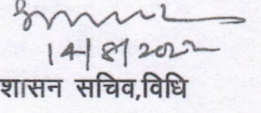 14/8/2022
शासन सचिव,विधि